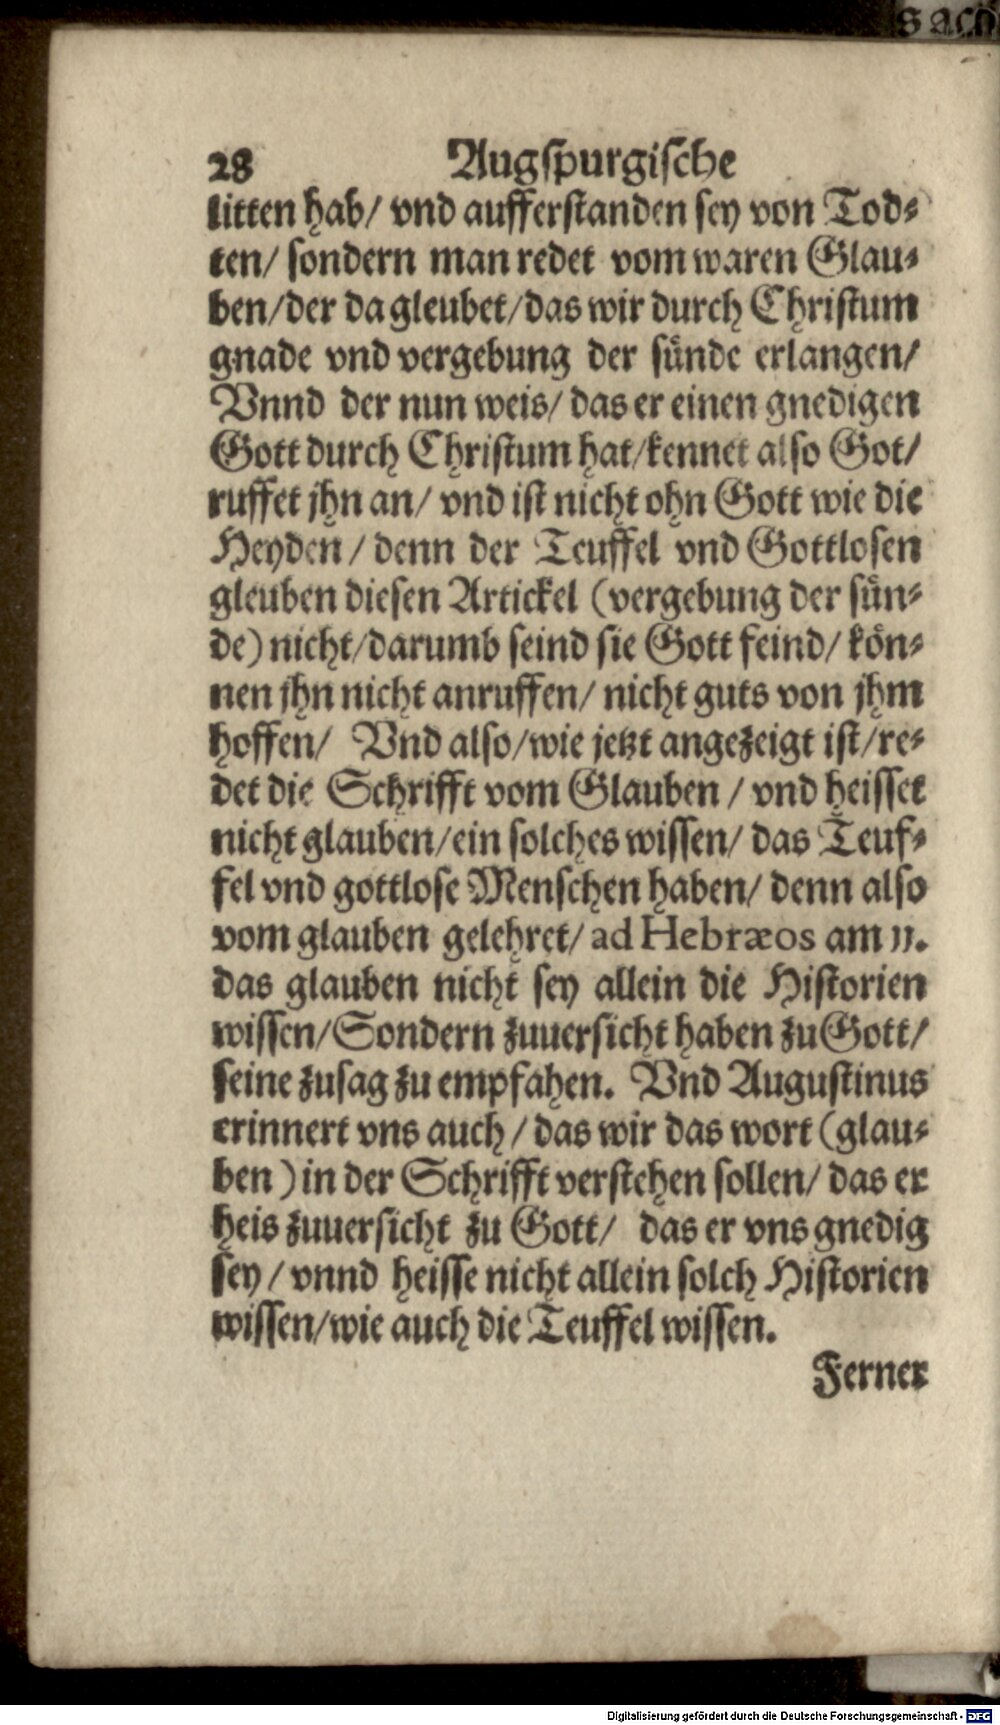 28 Augspurgische
litten hab/ vnd aufferstanden sey von Tod⸗
ten/ sondern man redet vom waren Glau⸗
ben/der da gleubet/das wir durch Christum
gnade vnd vergebung der sünde erlangen/
Vnnd der nun weis/ das er einen gnedigen
Gott durch Christum hat/kennet also Got/
ruffet jhn an/ vnd ist nicht ohn Gott wie die
Heyden/ denn der Teuffel vnd Gottlosen
gleuben diesen Artickel (vergebung der sün⸗
de) nicht/darumb seind sie Gott feind/ kön⸗
nen jhn nicht anruffen/ nicht guts von jhm
hoffen/ Vnd also/wie jetzt angezeigt ist/re⸗
det die Schrifft vom Glauben/ vnd heisset
nicht glauben/ein solches wissen/ das Teuf⸗
fel vnd gottlose Menschen haben/ denn also
vom glauben gelehret/ ad Hebræos am 11.
das glauben nicht sey allein die Historien
wissen/Sondern zuuersicht haben zu Gott/
seine zusag zu empfahen. Vnd Augustinus
erinnert vns auch/ das wir das wort (glau⸗
ben) in der Schrifft verstehen sollen/ das er
heis zuuersicht zu Gott/ das er vns gnedig
sey/ vnnd heisse nicht allein solch Historien
wissen/wie auch die Teuffel wissen.
Ferner
Digitalisierung gefördert durch die Deutsche Forschungsgemeinschaft - DFG